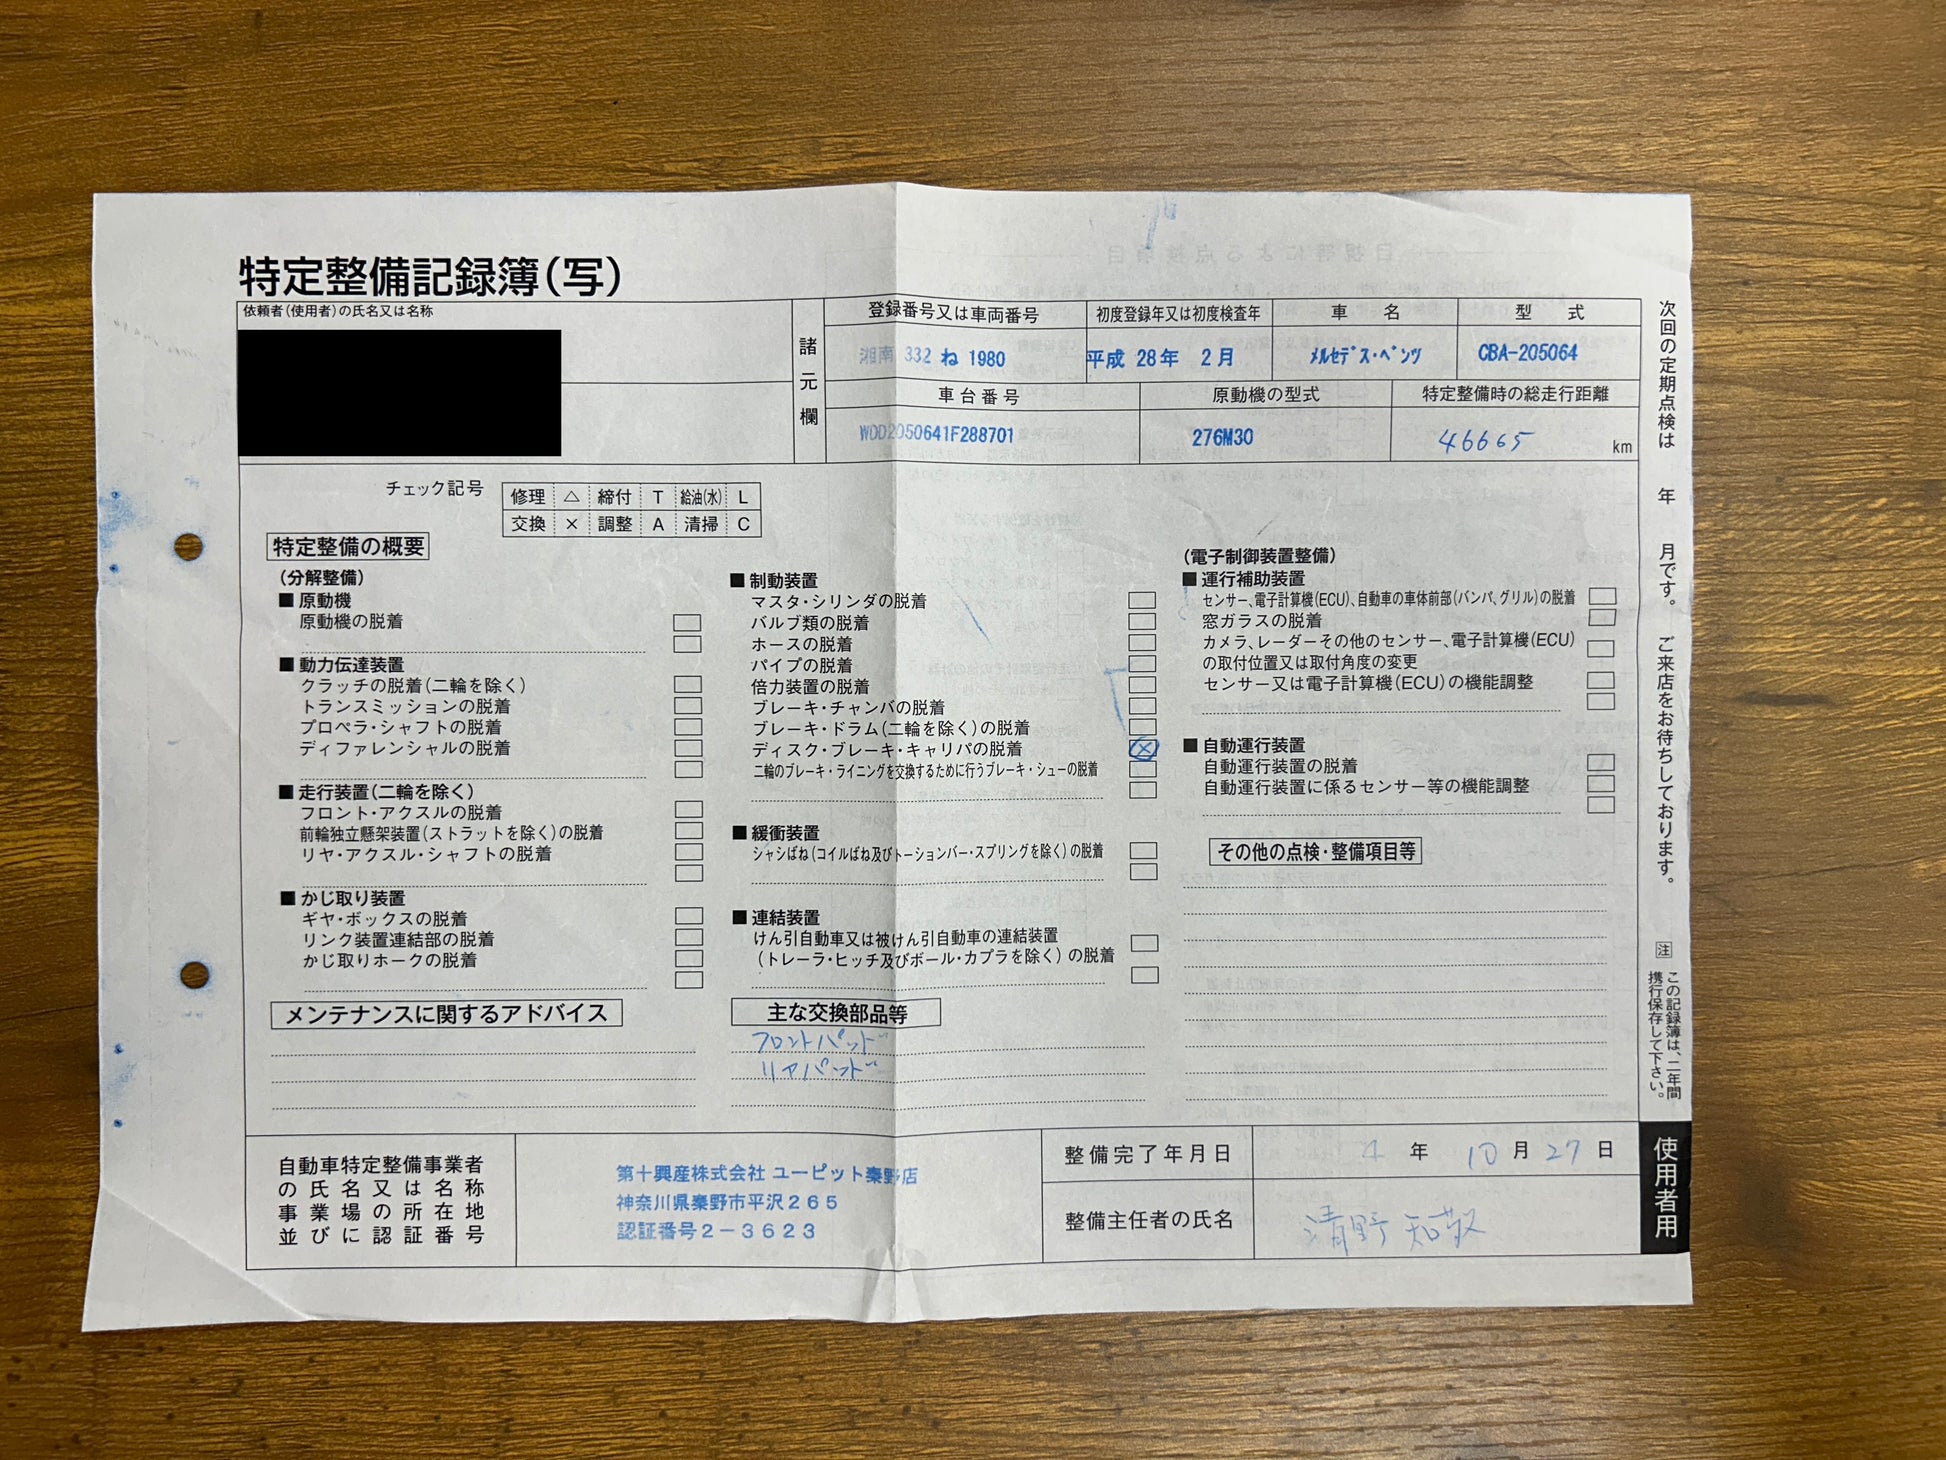 特定整備記録簿(写)
依頼者(使用者)の氏名又は名称
諸元欄
登録番号又は車両番号
初度登録年又は初度検査年
車 名
型 式
湘南 332 ね 1980
平成 28年 2月
メルセデス・ベンツ
CBA-205064
車台番号
原動機の型式
特定整備時の総走行距離
WDD2050641F288701
276M30
46665 km
チェック記号
修理 △ 締付 T 給油(水) L
交換 × 調整 A 清掃 C
特定整備の概要
(分解整備)
■ 原動機
原動機の脱着
■ 動力伝達装置
クラッチの脱着(二輪を除く)
トランスミッションの脱着
プロペラ・シャフトの脱着
ディファレンシャルの脱着
■ 走行装置(二輪を除く)
フロント・アクスルの脱着
前輪独立懸架装置(ストラットを除く)の脱着
リヤ・アクスル・シャフトの脱着
■ かじ取り装置
ギヤ・ボックスの脱着
リンク装置連結部の脱着
かじ取りホークの脱着
■ 制動装置
マスタ・シリンダの脱着
バルブ類の脱着
ホースの脱着
パイプの脱着
倍力装置の脱着
ブレーキ・チャンバの脱着
ブレーキ・ドラム(二輪を除く)の脱着
ディスク・ブレーキ・キャリパの脱着 ×
二輪のブレーキ・ライニングを交換するために行うブレーキ・シューの脱着
■ 緩衝装置
シャシばね(コイルばね及びトーションバー・スプリングを除く)の脱着
■ 連結装置
けん引自動車又は被けん引自動車の連結装置
(トレーラ・ヒッチ及びボール・カプラを除く)の脱着
(電子制御装置整備)
■ 運行補助装置
センサー、電子計算機(ECU)、自動車の車体前部(バンパ、グリル)の脱着
窓ガラスの脱着
カメラ、レーダーその他のセンサー、電子計算機(ECU)
の取付位置又は取付角度の変更
センサー又は電子計算機(ECU)の機能調整
■ 自動運行装置
自動運行装置の脱着
自動運行装置に係るセンサー等の機能調整
その他の点検・整備項目等
メンテナンスに関するアドバイス
主な交換部品等
フロントパッド
リアパッド
自動車特定整備事業者
の氏名又は名称
事業場の所在地
並びに認証番号
第十興産株式会社 ユーピット秦野店
神奈川県秦野市平沢265
認証番号2-3623
整備完了年月日
4 年 10 月 27 日
整備主任者の氏名
清野 知敬
次回の定期点検は 年 月です。 ご来店をお待ちしております。
注 この記録簿は、二年間
携行保存して下さい。
使用者用